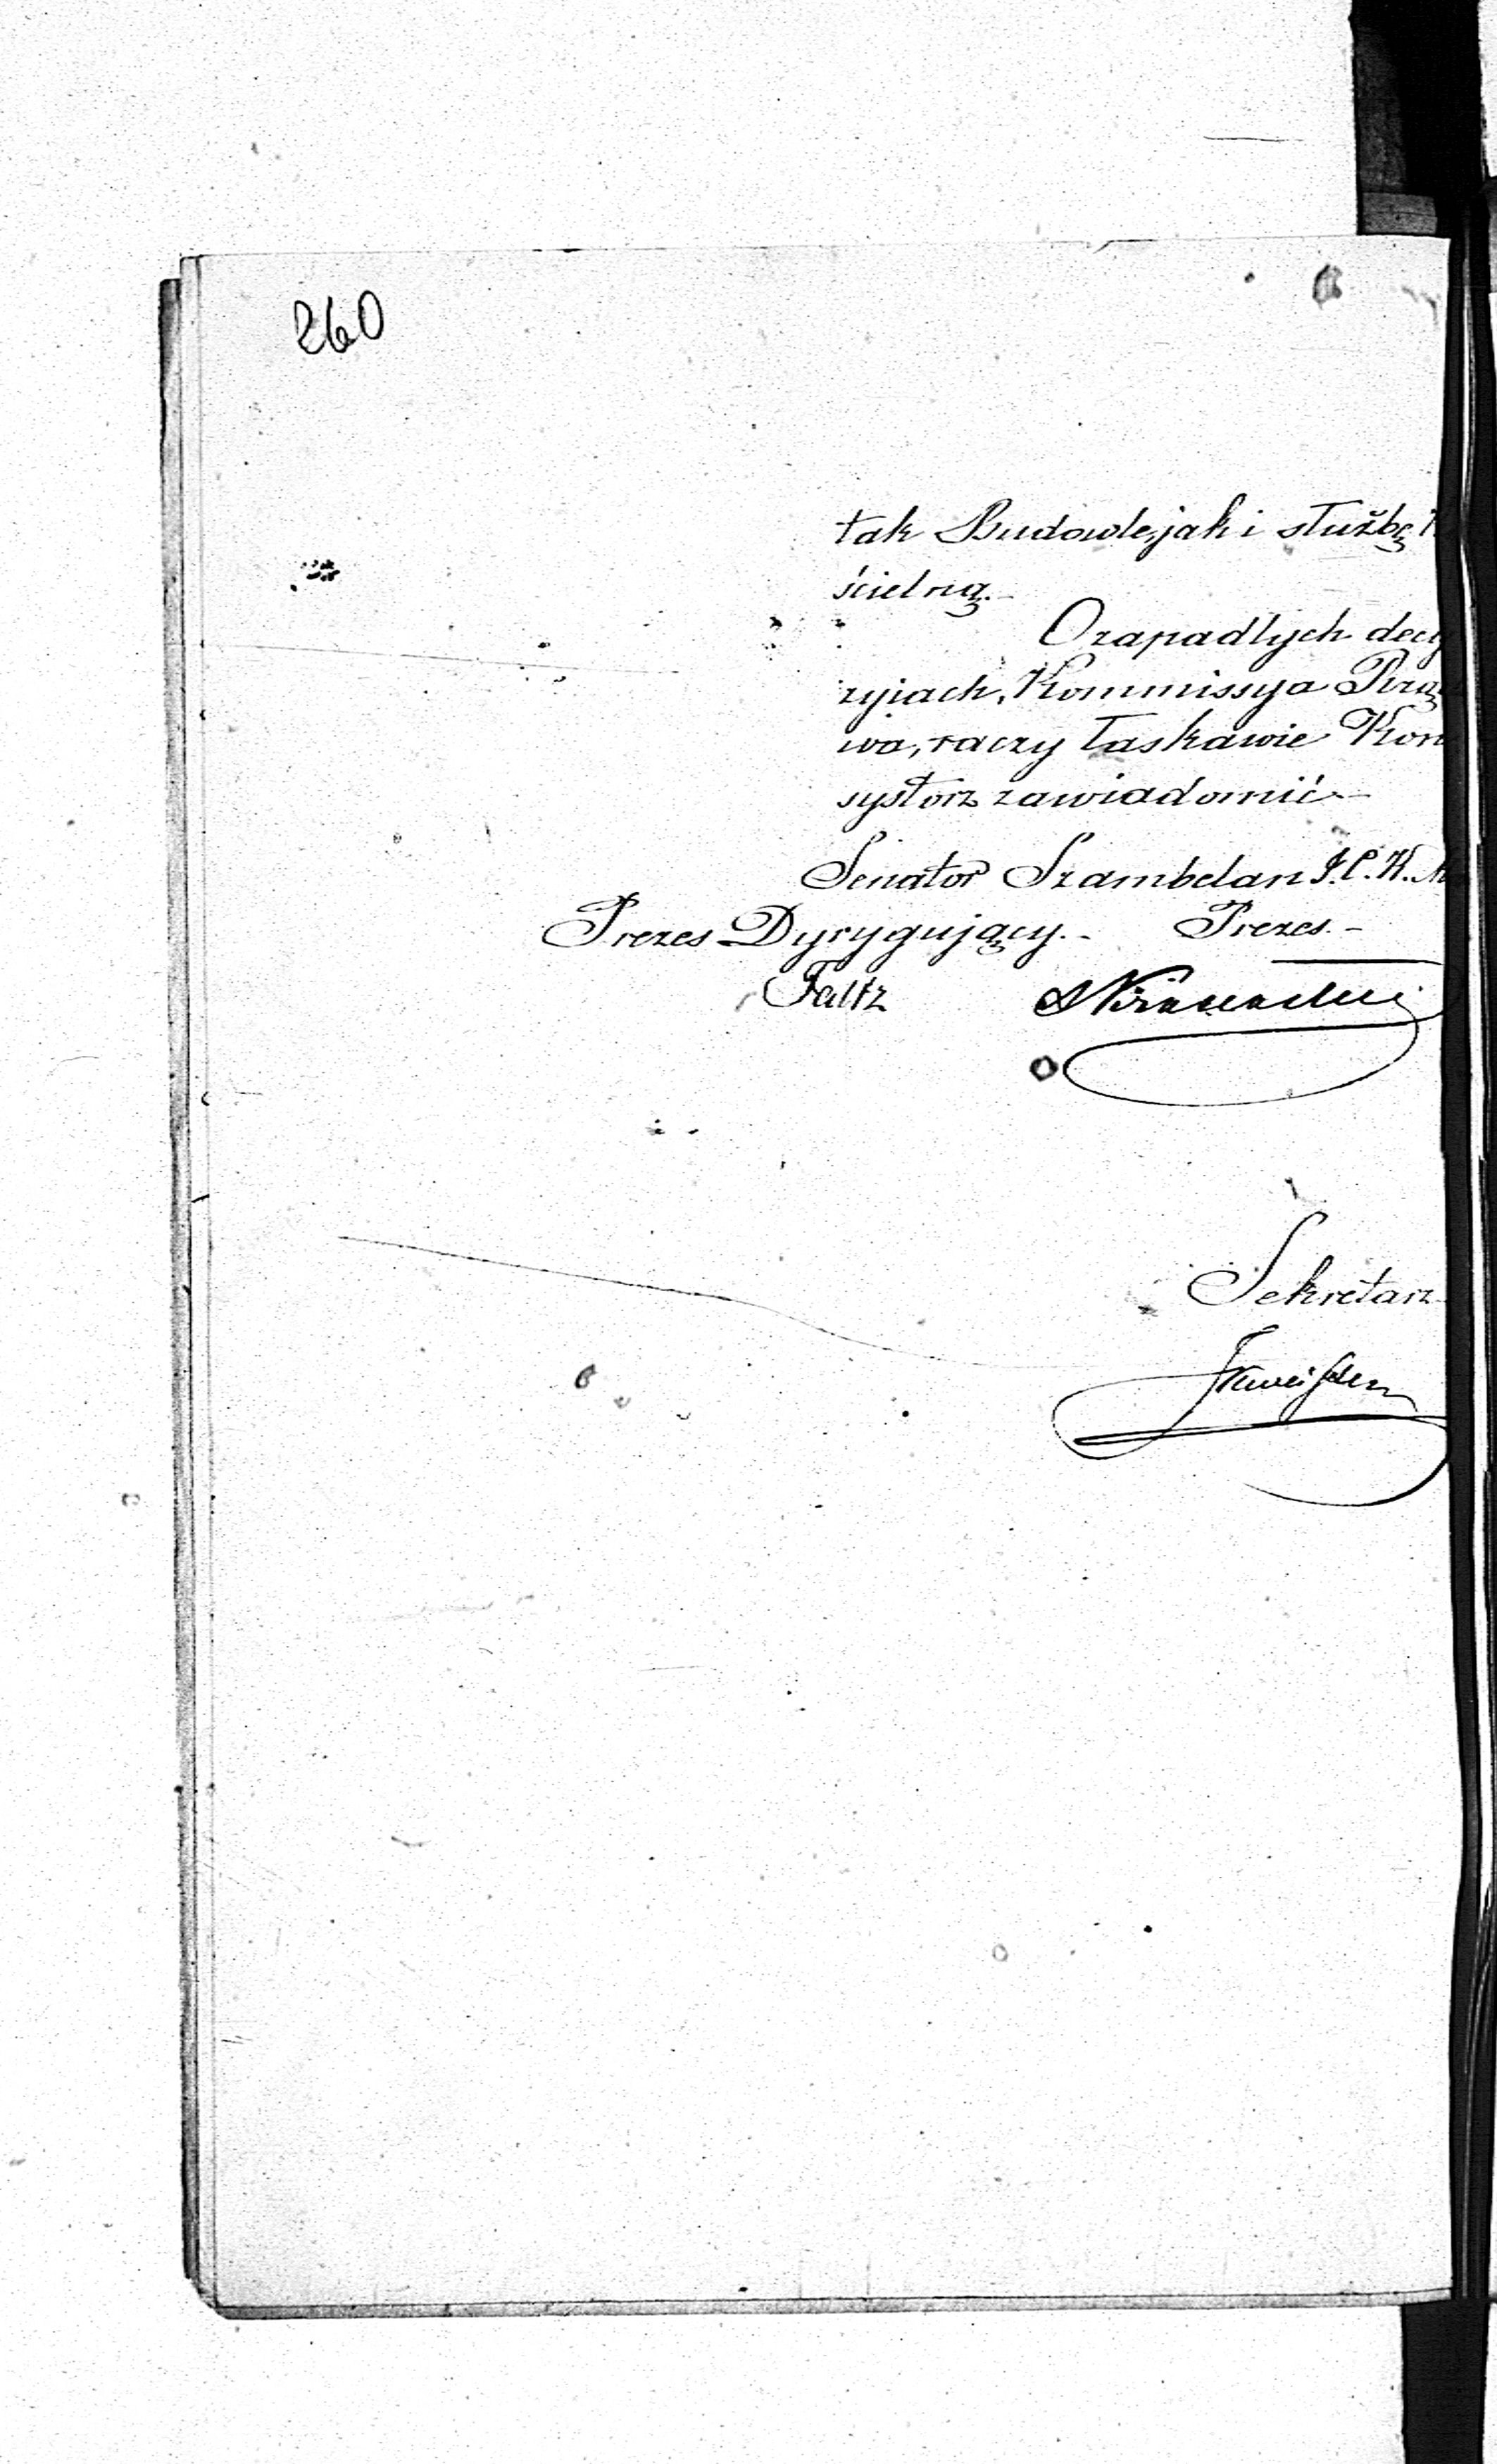 260
tak Budowle, jak i służbę
ścielną.-
O zapadłych decy
zyjach, Kommissya Rzą
wa, raczy łaskawie Kon
systorz zawiadomić.-
Senator Szambelan J. C. K. M
Prezes Dyrygujący.- Prezes.-
Faltz
Sekretarz